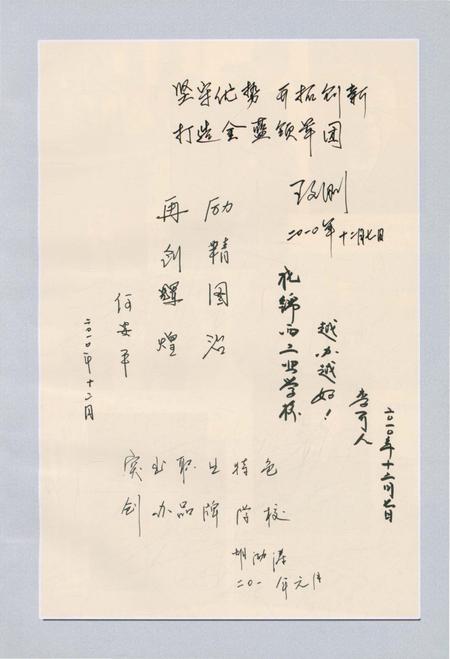 坚守优势 开拓创新
打造金蓝领军团
二〇一〇年十二月七日
励精图治
再创辉煌
何安平
二〇一〇年十二月
祝绵竹工业学校
越办越好！
李可人
二〇一〇年十二月七日
突出职业特色
创办品牌院校
二〇一一年元月